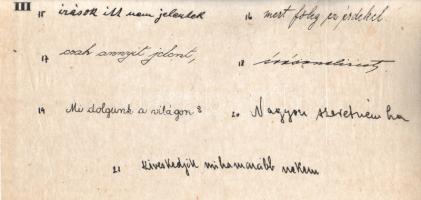 III
15 írások itt nem jelentek 16 mert főleg ez érdekel
17 csak annyit jelent, 18
19 Mi dolgunk a világon? 20 Nagyon szeretném ha
21 szíveskedjék mihamarább nekem